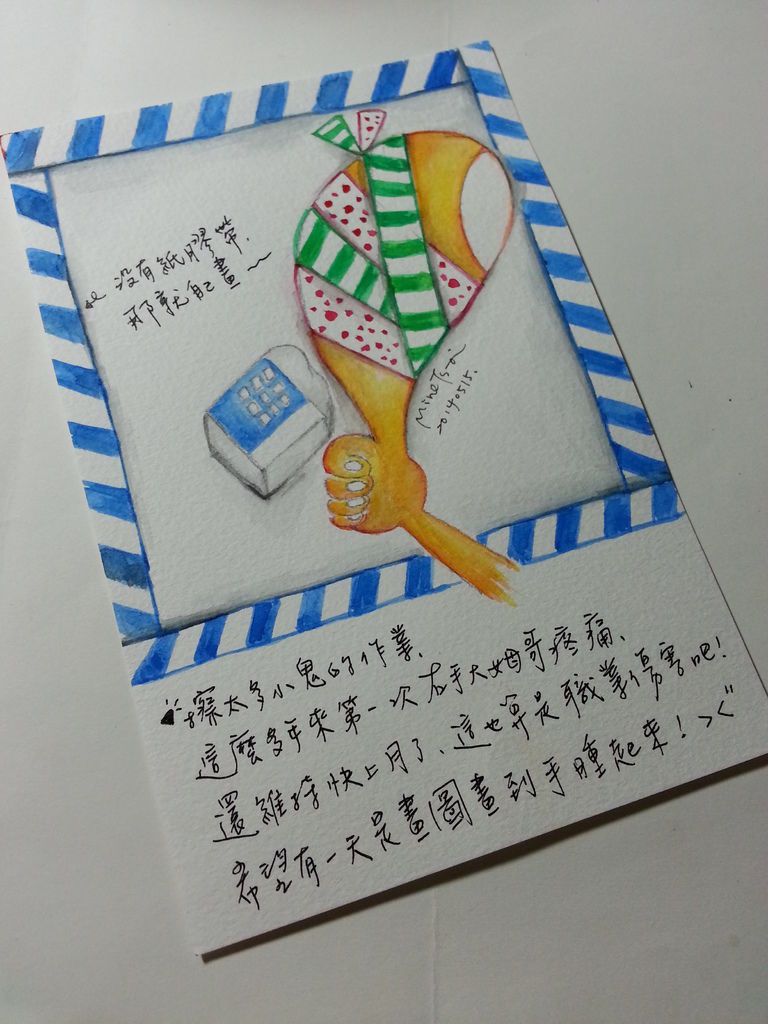 沒有紙膠帶.
那就自己畫~
MineTsai
20140515.
擦太多小鬼的作業.
這麼多年來第一次右手大姆哥疼痛、
還維持快上月了、這也算是職業傷害吧!
希望有一天是畫圖畫到手腫起來! ><"